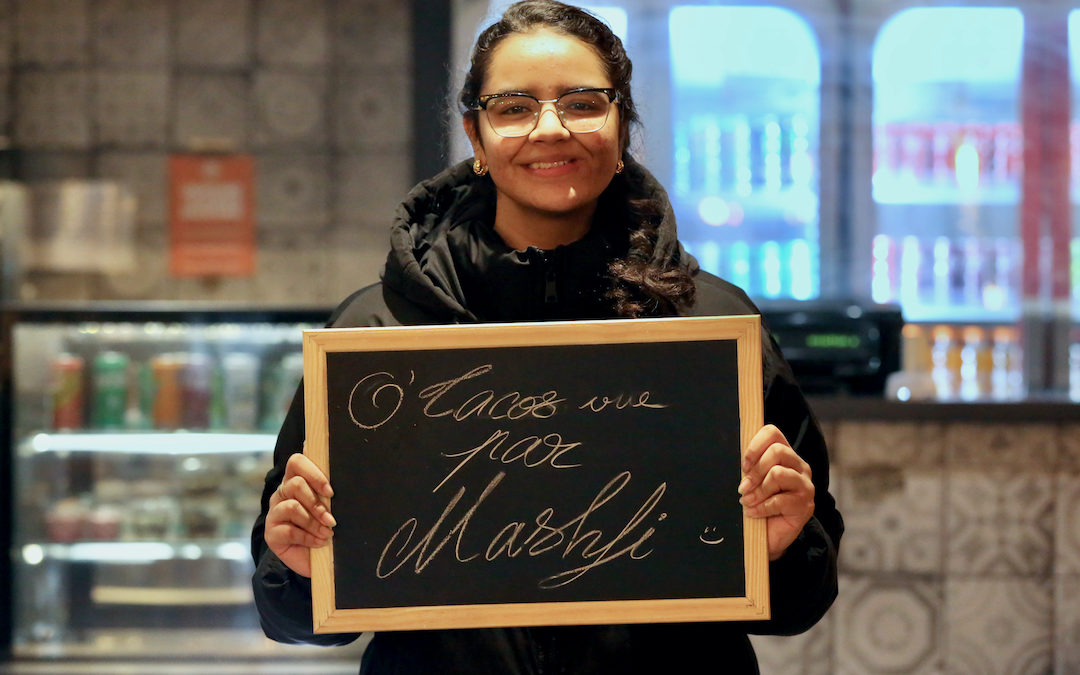 O'Tacos vue
par
Mashfi :)